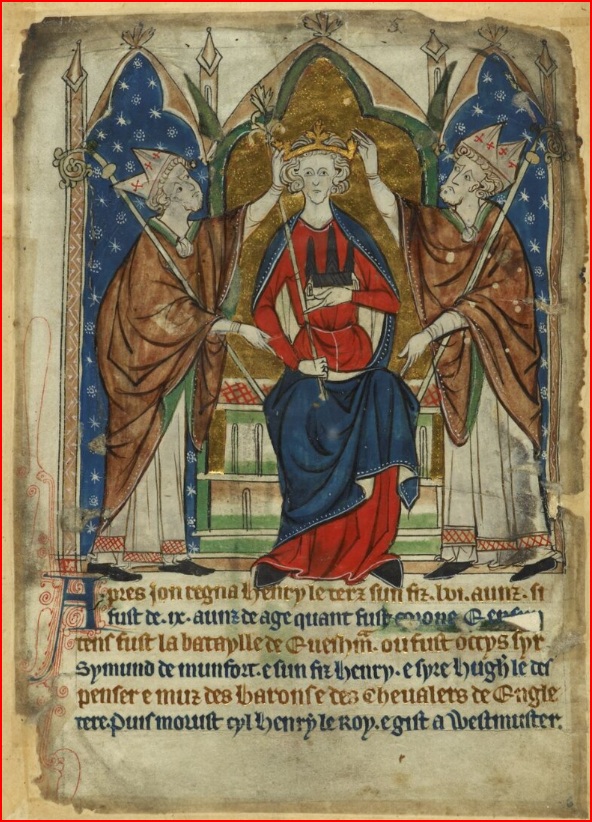 Apres Jon regna Henry le terz sun fiz. lvi. aunz. si
fust de. ix. aunz de age quant fust
tens fust la bataylle de Euesham. ou fust occys syr
Symund de munfort. e sun fiz Henry. e syre Hugh le des
penser e muz des Barons e des Cheualers de Engle
tere. Puis morust cyl Henry le Roy. e gist a Westmuster.